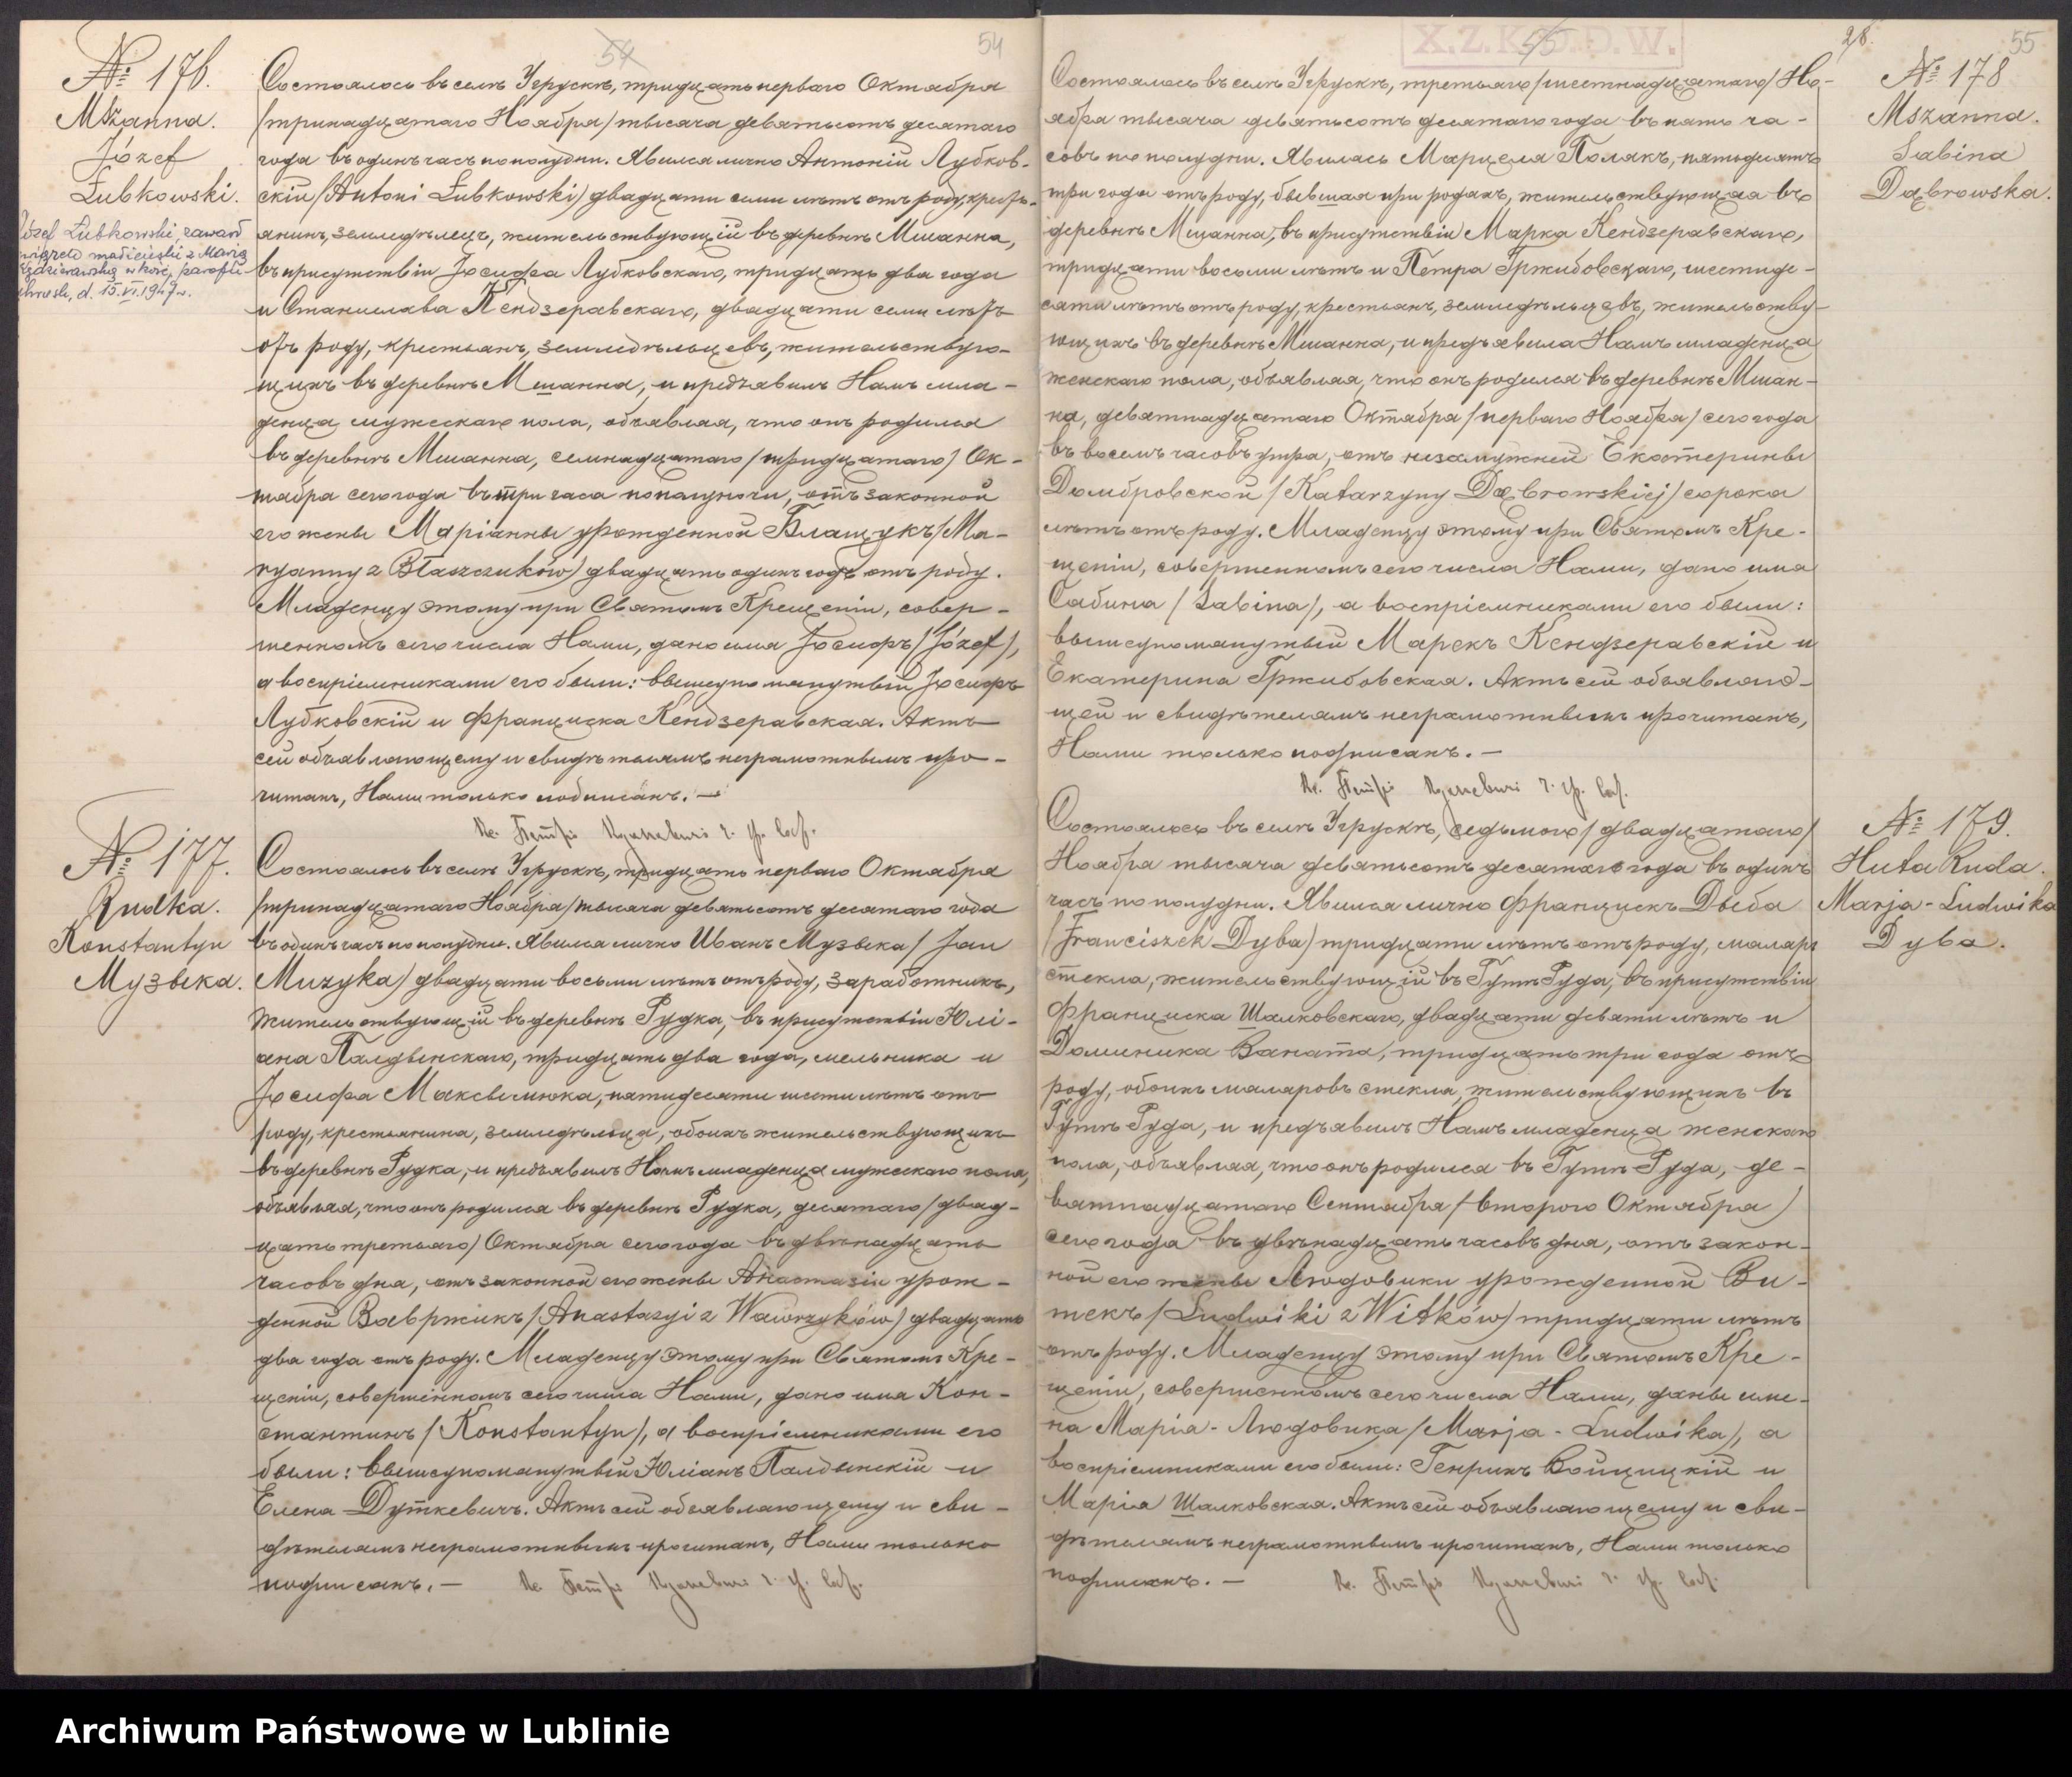 54
54
№ 176.
Mszanna.
Józef
Łubkowski.
Józef Łubkowski, zawarł
związek małżeński z Marią
w kość. parafii
d. 15.VI.1947 r.
Состоялось въ селѣ Угрускѣ, тридцать перваго Октября
/тринадцатаго Ноября/ тысяча девятьсотъ десятаго
года въ одинъ часъ по полудни. Явился лично Антоній Лубков-
скій /Antoni Łubkowski/ двадцати семи лѣтъ отъ роду, кресть-
янинъ, земледѣлецъ, жительствующій въ деревнѣ Мшанна,
въ присутствіи Іосифа Лубковскаго, тридцать два года
и Станислава Кендзеравскаго, двадцати семи лѣтъ
отъ роду, крестьянъ, земледѣльцевъ, жительствую-
щихъ въ деревнѣ Мшанна, и предъявилъ Намъ мла-
денца мужескаго пола, объявляя, что онъ родился
въ деревнѣ Мшанна, семнадцатаго /тридцатаго/ Ок-
тября сего года въ три часа пополуночи, отъ законной
его жены Маріанны урожденной Блащукъ /Ma-
ryanny z Błaszczuków/ двадцать одинъ годъ отъ роду.
Младенцу этому при Святомъ Крещеніи, совер-
шенномъ сего числа Нами, дано имя Іосифъ /Józef/,
а воспріемниками его были: вышеупомянутый Іосифъ
Лубковскій и Франциска Кендзеравская. Актъ
сей объявляющему и свидѣтелямъ неграмотнымъ про-
читанъ, Нами только подписанъ. —
№ 177.
Rudka.
Konstantyn
Музыка.
Состоялось въ селѣ Угрускѣ, тридцать перваго Октября
/тринадцатаго Ноября/ тысяча девятьсотъ десятаго года
въ одинъ часъ по полудни. Явился лично Иванъ Музыка /Jan
Muzyka/ двадцати восьми лѣтъ отъ роду, заработникъ,
жительствующій въ деревнѣ Рудка, въ присутствіи Юлі-
ана Палдынскаго, тридцать два года, мельника и
Іосифа Максымюка, пятидесяти шести лѣтъ отъ
роду, крестьянина, земледѣльца, обоихъ жительствующихъ
въ деревнѣ Рудка, и предъявилъ Намъ младенца мужескаго пола,
объявляя, что онъ родился въ деревнѣ Рудка, десятаго /двад-
цать третьяго/ Октября сего года въ двѣнадцать
часовъ дня, отъ законной его жены Анастазіи урож-
денной Вавржикъ /Anastazyi z Wawrzyków/ двадцать
два года отъ роду. Младенцу этому при Святомъ Кре-
щеніи, совершенномъ сего числа Нами, дано имя Кон-
стантинъ /Konstantyn/, а воспріемниками его
были: вышеупомянутый Юліанъ Палдынскій и
Елена Дуткевичъ. Актъ сей объявляющему и сви-
дѣтелямъ неграмотнымъ прочитанъ, Нами только
подписанъ. —
X.Z.K.O.D.W.
55
28.
55
№ 178
Mszanna.
Sabina
Dąbrowska.
Состоялось въ селѣ Угрускѣ, третьяго /шестнадцатаго/ Но-
ября тысяча девятьсотъ десятаго года въ пять ча-
совъ по полудни. Явилась Марцеля Полякъ, пятьдесятъ
три года отъ роду, бывшая при родахъ, жительствующая въ
деревнѣ Мшанна, въ присутствіи Марка Кендзеравскаго,
тридцати восьми лѣтъ и Петра Гржибовскаго, шестиде-
сяти лѣтъ отъ роду, крестьянъ, земледѣльцевъ, жительству-
ющихъ въ деревнѣ Мшанна, и предъявила Намъ младенца
женскаго пола, объявляя, что онъ родился въ деревнѣ Мшан-
на, девятнадцатаго Октября /перваго Ноября/ сего года
въ восемь часовъ утра, отъ незамужней Екатерины
Домбровской /Katarzyny Dąbrowskiej/ сорока
лѣтъ отъ роду. Младенцу этому при Святомъ Кре-
щеніи, совершенномъ сего числа Нами, дано имя
Сабина /Sabina/, а воспріемниками его были:
вышеупомянутый Марекъ Кендзеравскій и
Екатерина Гржибовская. Актъ сей объявляю-
щей и свидѣтелямъ неграмотнымъ прочитанъ,
Нами только подписанъ. —
№ 179.
Huta Ruda.
Marja-Ludwika
Dyba.
Состоялось въ селѣ Угрускѣ, седьмого /двадцатаго/
Ноября тысяча девятьсотъ десятаго года въ одинъ
часъ по полудни. Явился лично Францискъ Дыба
/Franciszek Dyba/ тридцати лѣтъ отъ роду, маляръ
стекла, жительствующій въ Гутѣ Руда, въ присутствіи
Франциска Шалковскаго, двадцати девяти лѣтъ и
ДоминикаВаната, тридцать три года отъ
роду, обоихъ маляровъ стекла, жительствующихъ въ
Гутѣ Руда, и предъявилъ Намъ младенца женскаго
пола, объявляя, что онъ родился въ Гутѣ Руда, де-
вятнадцатаго Сентября /второго Октября/
сего года въ двѣнадцать часовъ дня, отъ закон-
ной его жены Людовики урожденной Ви-
текъ /Ludwiki z Witków/ тридцати лѣтъ
отъ роду. Младенцу этому при Святомъ Кре-
щеніи, совершенномъ сего числа Нами, даны име-
на Марія-Людовика /Marja-Ludwika/, а
воспріемниками его были: Генрихъ Войцицкій и
Марія Шалковская. Актъ сей объявляющему и сви-
дѣтелямъ неграмотнымъ прочитанъ, Нами только
подписанъ. —
Archiwum Państwowe w Lublinie